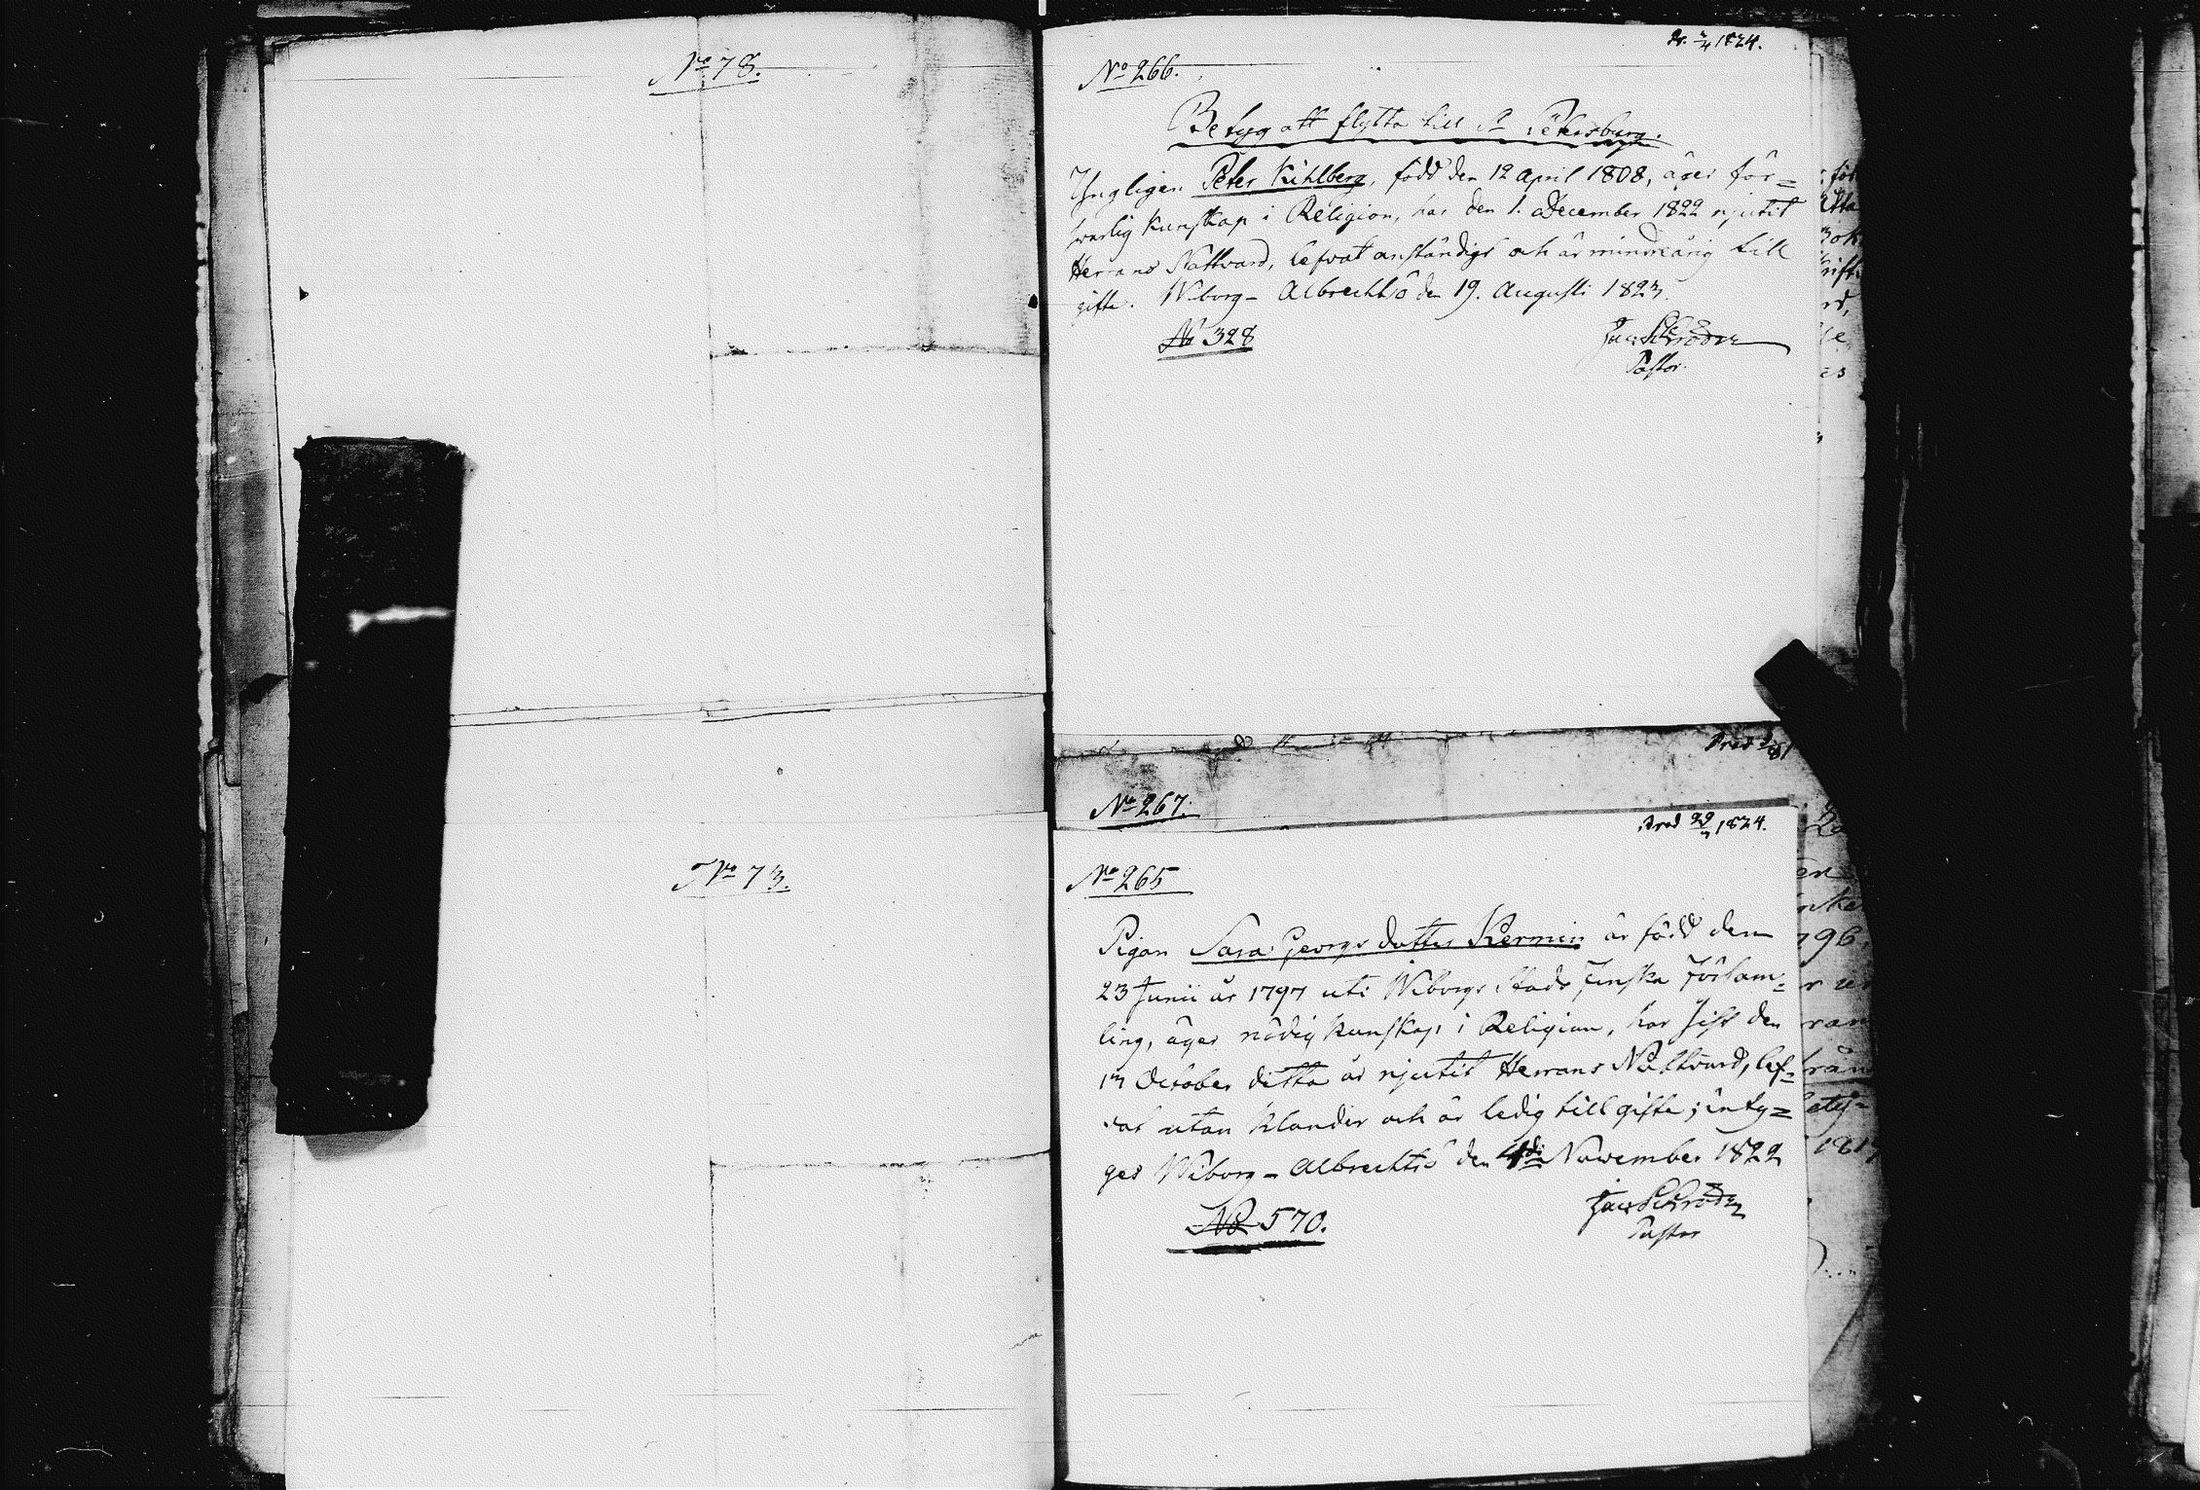 No 78.
No 73.
1824.
No 266.
Betyg att flytta till St Petersburg.
Yngligen Peter Kihlberg, född den 12 April 1808, äger för=
svarlig kunskap i Religion, har den 1. December 1822 njutit
Herrans Nattvard, lefvat anständigt och är minderårig till
gifte. Wiborg - Albrechtsö den 19. Augusti 1823.
No 328
Jac Schröder
Pastor.
No 267.
29 1824.
No 265
Pigan Sara Georgs dotter Kermin är född den
23 Junii år 1797 uti Wiborgs Stads finska Försam=
ling, äger nödig kunskap i Religion, har sist den
13 October ditto år njutit Herrans Nattvard, lef=
vat utan klander och är ledig till gifte; inty=
ges Wiborg - Albrechtsö den 4de November 1822
No 570.
Jac Schröder
Pastor